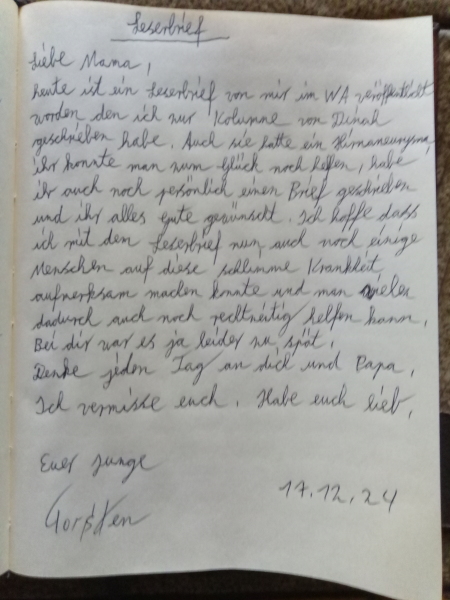 Leserbrief
Liebe Mama,
heute ist ein Leserbrief von mir im WA veröffentlicht
worden den ich zur Kolumne von Dinah
geschrieben habe. Auch sie hatte ein Hirnaneurysma,
ihr konnte man zum Glück noch helfen, habe
ihr auch noch persönlich einen Brief geschrieben
und ihr alles gute gewünscht. Ich hoffe dass
ich mit dem Leserbrief nun auch noch einige
Menschen auf diese schlimme Krankheit
aufmerksam machen konnte und man vielen
dadurch auch noch rechtzeitig helfen kann.
Bei dir war es ja leider zu spät.
Denke jeden Tag an dich und Papa.
Ich vermisse euch. Habe euch lieb.
Euer Junge
17.12.24
Torsten